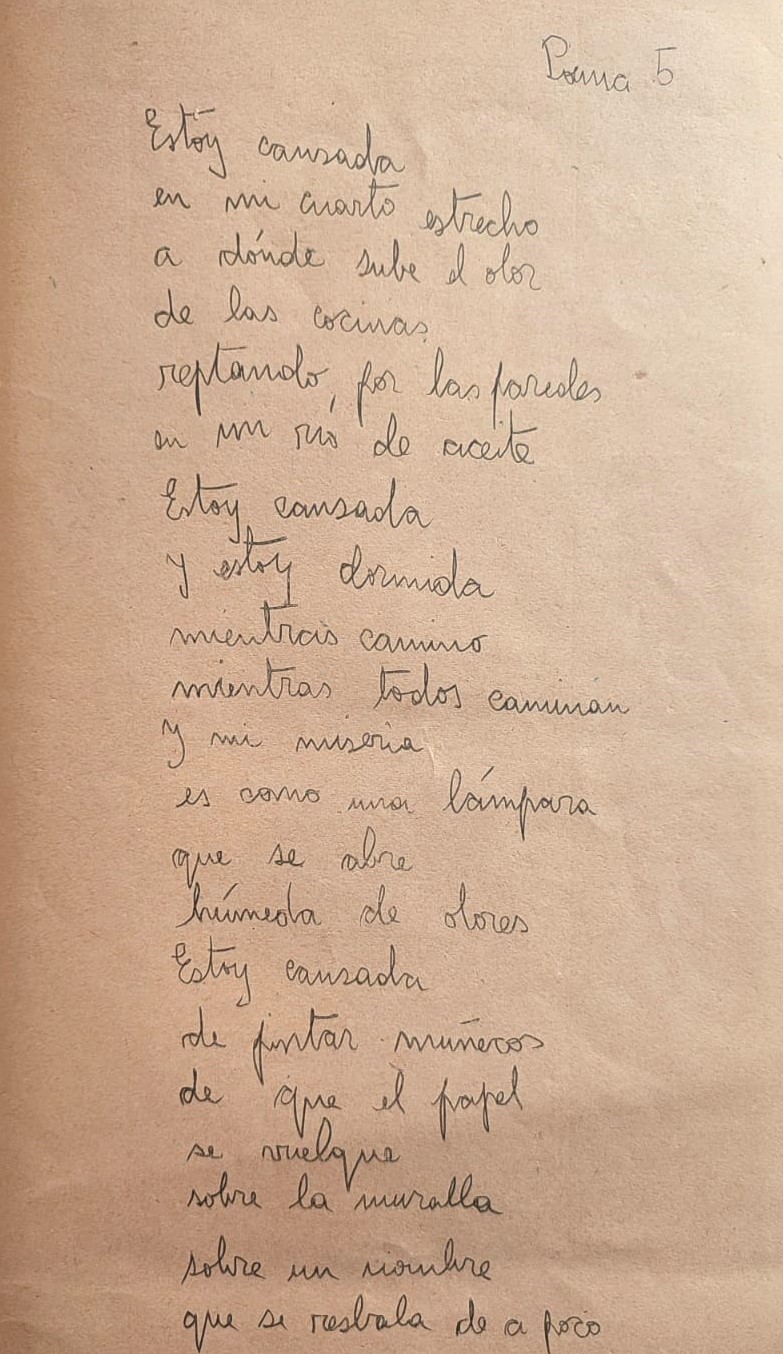 Poema 5
Estoy cansada
en mi cuarto estrecho
a dónde sube el olor
de las cocinas
reptando, por las paredes
en un río de aceite
Estoy cansada
y estoy dormida
mientras camino
mientras todos caminan
y mi miseria
es como una lámpara
que se abre
húmeda de olores
Estoy cansada
de pintar muñecos
de que el papel
se vuelque
sobre la muralla
sobre un nombre
que se resbala de a poco